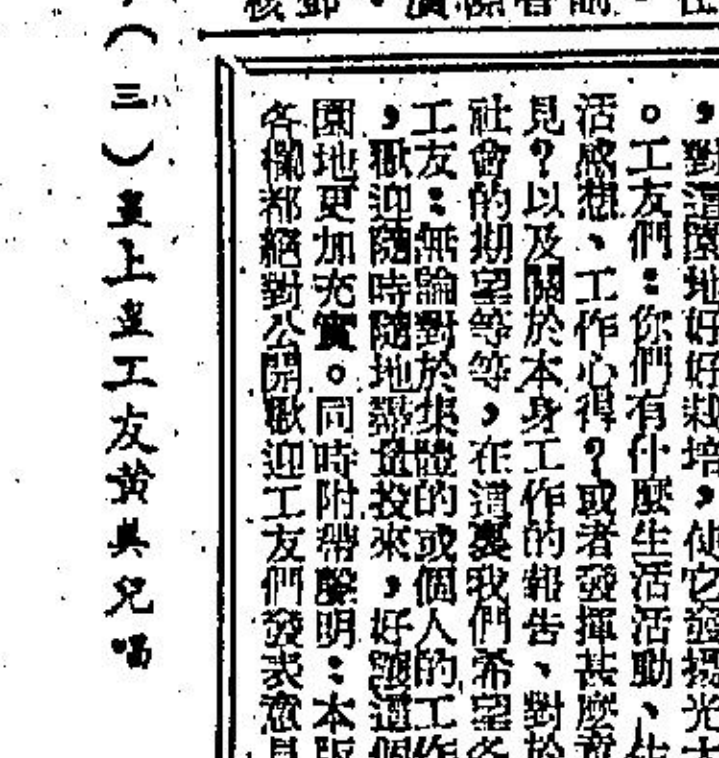 ，對這園地好好栽培，使它發揚光大
。工友們：你們有什麼生活活動、生
活感想、工作心得？或者發揮甚麼意
見？以及關於本身工作的報告、對於
社會的期望等等，在這裏我們希望各
工友：無論對於集體的或個人的工作
，歡迎隨時隨地盡量投來，好讓這個
園地更加充實。同時附帶聲明：本版
各欄都絕對公開歡迎工友們發表意見
（三）上工友黃與兒唱